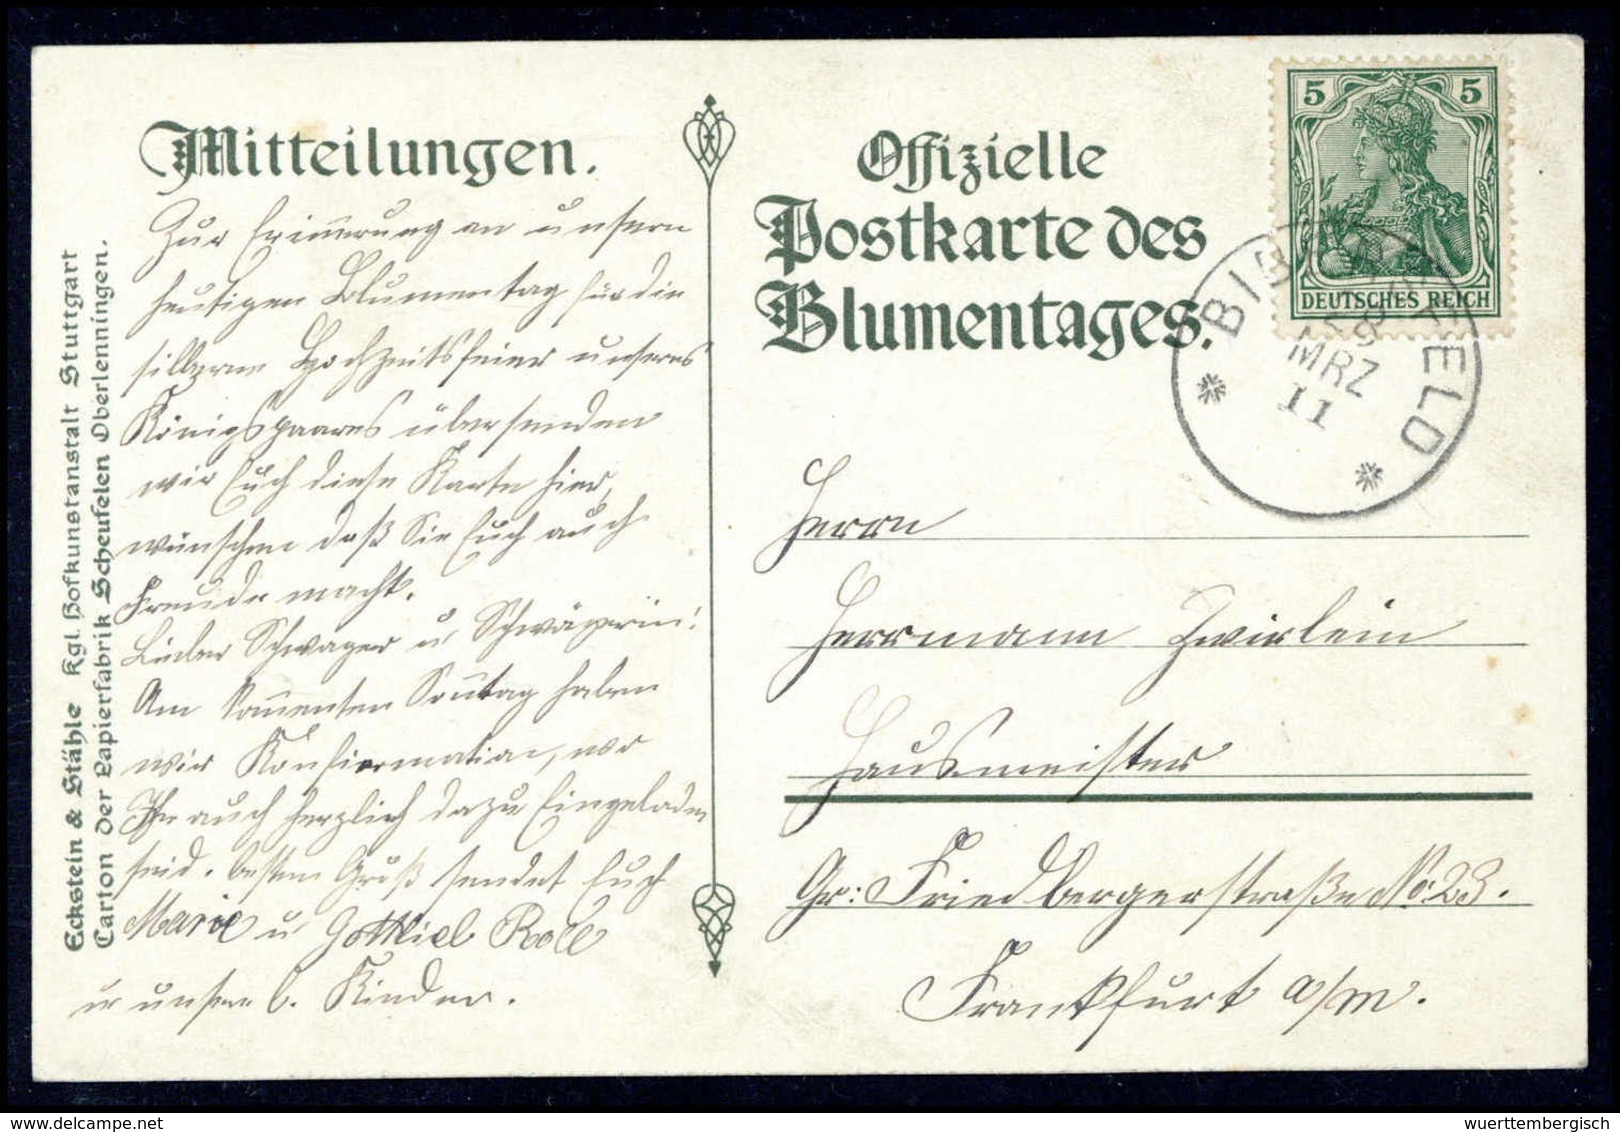 Mitteilungen.
Zur Erinnerung an unsern
heutigen Blumentag für die
silberne Hochzeitsfeier unseres
Königspaares übersenden
wir Euch diese Karte hier,
wünschen daß Sie Euch auch
Freude macht.
Lieber Schwager u. Schwägerin!
Am kommenten Sontag haben
wir Konfirmation, wo
Ihr auch herzlich dazu Eingeladen
seid. besten Gruß sendet Euch
Marie u Gottliel Roll
u unsere 6. Kinder.
Eckstein & Stähle Kgl. Hofkunstanstalt Stuttgart
Carton der Papierfabrik Scheufelen Oberlenningen.
Offizielle
Postkarte des
Blumentages.
5 5
DEUTSCHES REICH
MRZ
11
Herrn
Herrmann Zwirlein
Hausmeister
Gr: Friedbergerstraße No: 23.
Frankfurt a/m.
wuerttembergisch